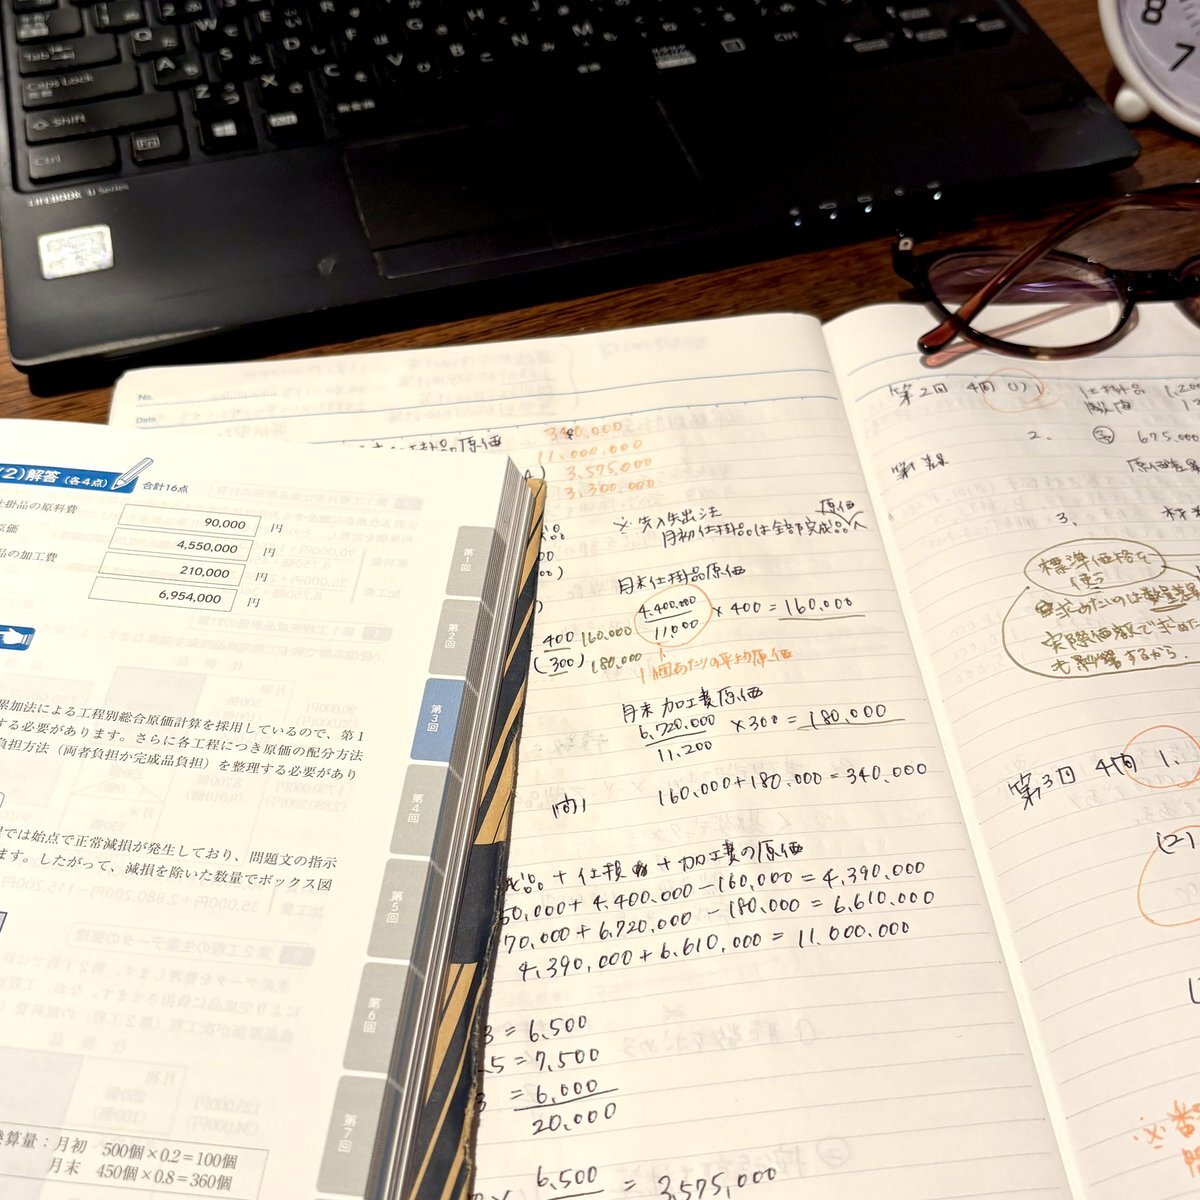 Tab
Caps Lock
Shift
Ctrl
Ctrl
LIFEBOOK U Series
8
7
No.
Date
(2)解答(各4点)
合計16点
仕掛品の原料費 90,000 円
原価 4,550,000 円
品の加工費 210,000 円
6,954,000 円
累加法による工程別総合原価計算を採用しているので、第1
する必要があります。さらに各工程につき原価の配分方法
負担方法(両者負担か完成品負担)を整理する必要があり
では始点で正常減損が発生しており、問題文の指示
ます。したがって、減損を除いた数量でボックス図
算量:月初 500個×0.2=100個
月末 450個×0.8=360個
第1回
第2回
第3回
第4回
第5回
第6回
第7回
仕掛品原価 340,000
11,000,000
3,575,000
3,300,000
※先入先出法
原価
月初仕掛品は全部完成品へ
月末仕掛品原価
4,400,000
11,000
×400=160,000
400 160,000
(300) 180,000
1個あたりの平均原価
月末加工費原価
6,720,000
11,200
×300=180,000
問1 160,000+180,000=340,000
+加工費の原価
50,000+4,400,000-160,000=4,390,000
70,000+6,720,000-180,000=6,610,000
4,390,000+6,610,000=11,000,000
3=6,500
.5=7,500
3=6,000
20,000
6,500
=3,575,000
第2回 4問(1) 仕掛品 1,200
2. 675,000
原価差異
3.
標準価格を
使う
求めたいのは数量差異
実際価額で求めた
も影響するから.
第3回 4問 1.
(2)